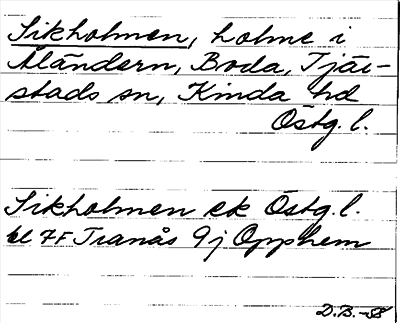 Sikholmen, holme i
Åländern, Boda, Tjär-
stads sn, Kinda hd
Östg. l.
Sikholmen ek Östg. l.
bl 7F Tranås 9j Opphem
D.B.-B